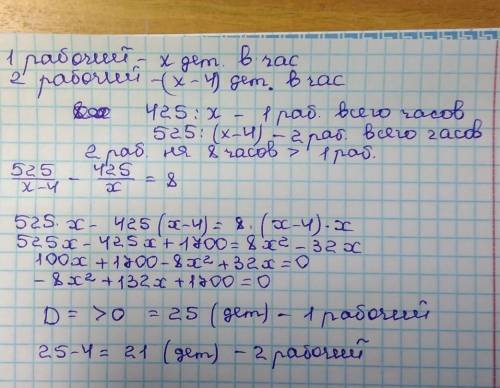 1 рабочий - x дет. в час
2 рабочий - (x-4) дет. в час
425 : x - 1 раб. всего часов
525 : (x-4) - 2 раб. всего часов
2 раб. на 8 часов > 1 раб.
525/(x-4) - 425/x = 8
525·x - 425(x-4) = 8·(x-4)·x
525x - 425x + 1700 = 8x² - 32x
100x + 1700 - 8x² + 32x = 0
-8x² + 132x + 1700 = 0
D = > 0 = 25 (дет) - 1 рабочий
25-4 = 21 (дет) - 2 рабочий